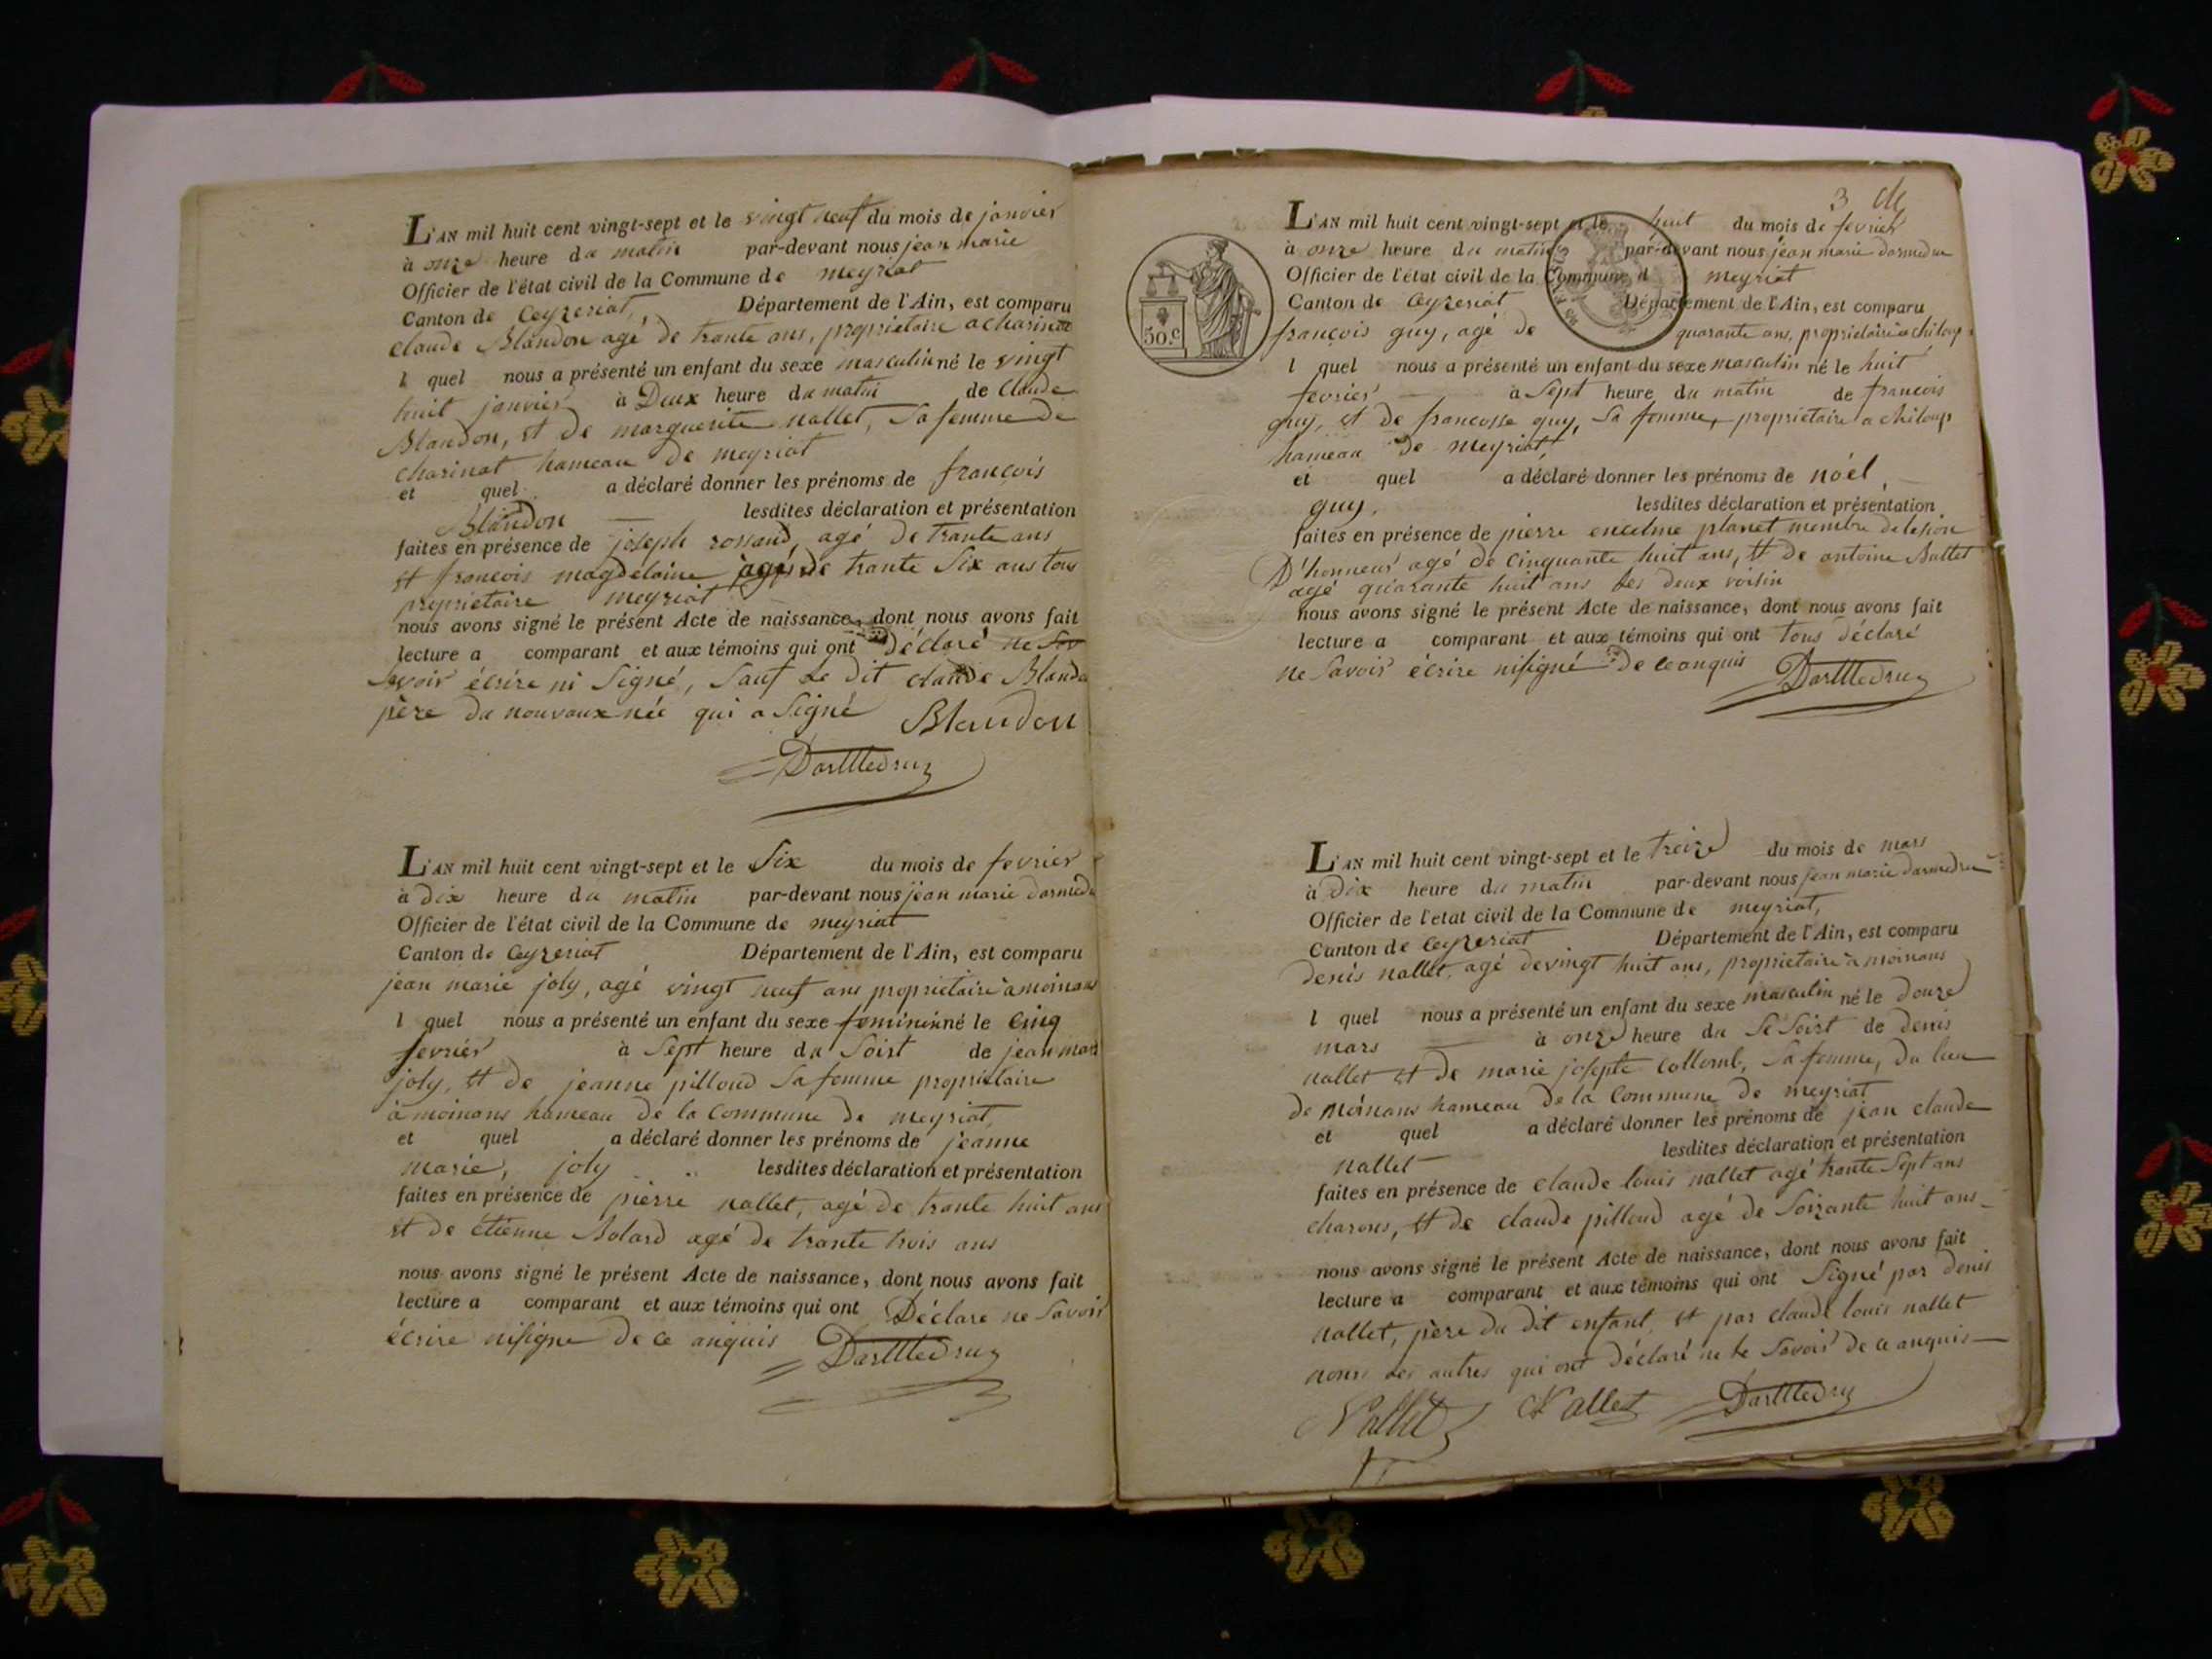 L'AN mil huit cent vingt-sept et le vingt neuf du mois de janvier
à onze heure du matin par-devant nous jean marie
Officier de l'état civil de la Commune de meyriat
Canton de Ceyzeriat, Département de l'Ain, est comparu
claude Blandon agé de trante ans, proprietaire a charinat
l quel nous a présenté un enfant du sexe masculin né le vingt
huit janvier à Deux heure du matin de Claude
Blandon, et de marguerite nallet, sa femme de
charinat hameau de meyriat
et quel a déclaré donner les prénoms de françois
Blandon lesdites déclaration et présentation
faites en présence de joseph rossand, agé de trante ans
et francois magdelaine agé de trante Six ans tous
proprietaire meyriat
nous avons signé le présent Acte de naissance, dont nous avons fait
lecture a comparant et aux témoins qui ont déclaré ne Sav
Savoir écrire ni Signé, Sauf Le dit claude Blandon
père du nouvaux née qui a Signé Blandon
Darmedru
L'AN mil huit cent vingt-sept et le Six du mois de fevrier
à dix heure du matin par-devant nous jean marie darmedru
Officier de l'état civil de la Commune de meyriat
Canton de Ceyzeriat Département de l'Ain, est comparu
jean marie joly, agé vingt neuf ans proprietaire a moinans
l quel nous a présenté un enfant du sexe feminin né le Cinq
fevrier à Sept heure du Soirt de jean mari
joly, et de jeanne pilloud Sa femme proprietaire
à moinans hameau de la Commune de meyriat,
et quel a déclaré donner les prénoms de jeanne
marie, joly lesdites déclaration et présentation
faites en présence de pierre nallet, agé de trante huit ans
et de étienne Bolard agé de trante trois ans
nous avons signé le présent Acte de naissance, dont nous avons fait
lecture a comparant et aux témoins qui ont Déclare ne Savoir
écrire nisigne de ce anquis Darmedru
3
L'AN mil huit cent vingt-sept et le huit du mois de fevrier
à onze heure du matin par-devant nous jean marie darmedru
Officier de l'état civil de la Commune d meyriat
Canton de Ceyzeriat Département de l'Ain, est comparu
50.c
françois guy, agé de quarante ans, proprietaire a chiloup
l quel nous a présenté un enfant du sexe masculin né le huit
fevrier à Sept heure du matin de francois
guy, et de francosse guy, Sa femme, proprietaire a chiloup
hameau de meyriat
et quel a déclaré donner les prénoms de nöel,
guy. lesdites déclaration et présentation
faites en présence de pierre encelme planet membre de lesion
D'honneur agé de Cinquante huit ans, et de antoine Ballet
agé quarante huit ans les deux voisin
nous avons signé le présent Acte de naissance, dont nous avons fait
lecture a comparant et aux témoins qui ont tous déclaré
ne Savoir écrire nisigné de ceanquis Darmedru
L'AN mil huit cent vingt-sept et le treize du mois de mars
à Dix heure du matin par-devant nous jean marie darmedru
Officier de l'etat civil de la Commune de meyriat,
Canton de Ceyzeriat Département de l'Ain, est comparu
denis nallet, agé devingt huit ans, proprietaire a moinans
l quel nous a présenté un enfant du sexe masculin né le douze
mars à onze heure du Se Soirt de denis
nallet et de marie josepte Collomb, Sa femme, du lieu
de moinans hameau de la Commune de meyriat
et quel a déclaré donner les prénoms de jean claude
nallet lesdites déclaration et présentation
faites en présence de claude louis nallet agé trante Sept ans
charons, et de claude pilloud agé de Soizante huit ans
nous avons signé le présent Acte de naissance, dont nous avons fait
lecture a comparant et aux témoins qui ont Signé par denis
nallet, père du dit enfant, et par claude louis nallet
nons les autres qui ont déclaré ne le Savoir de ce anquis
Nallet Nallet Darmedru